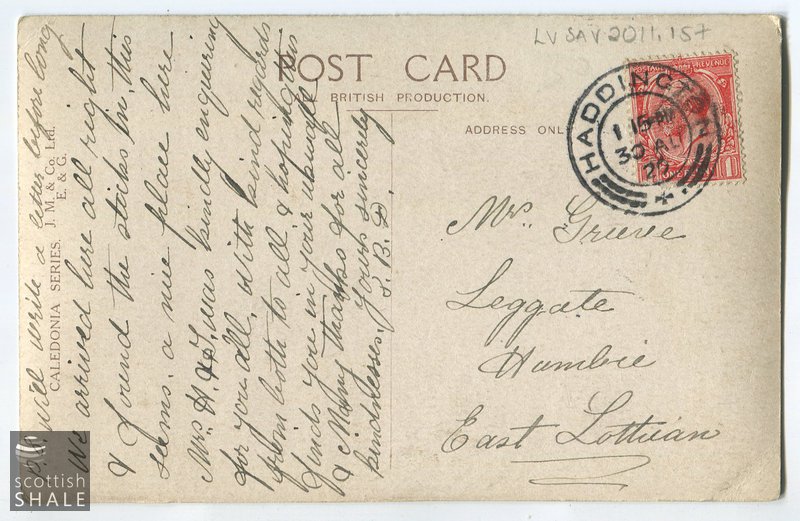 LVSAV2011.157
POST CARD
ALL BRITISH PRODUCTION.
ADDRESS ONL
HADDINGTON
1.15 PM
30 AU
22
POSTAGE REVENUE
CALEDONIA SERIES. J. M. & Co. Ltd.
E. & G.
will write a letter before long
We arrived here all right
& found the stocks in, this
seems a nice place here
Mrs. H. & S. was kindly enquiring
for you all, with kind regards
from both to all & hoping this
finds you in your usual
& Many thanks for all
kindnesses. Yours sincerely
J. B. D.
Mrs Grieve
Leggate
Humbie
East Lothian
scottish
SHALE